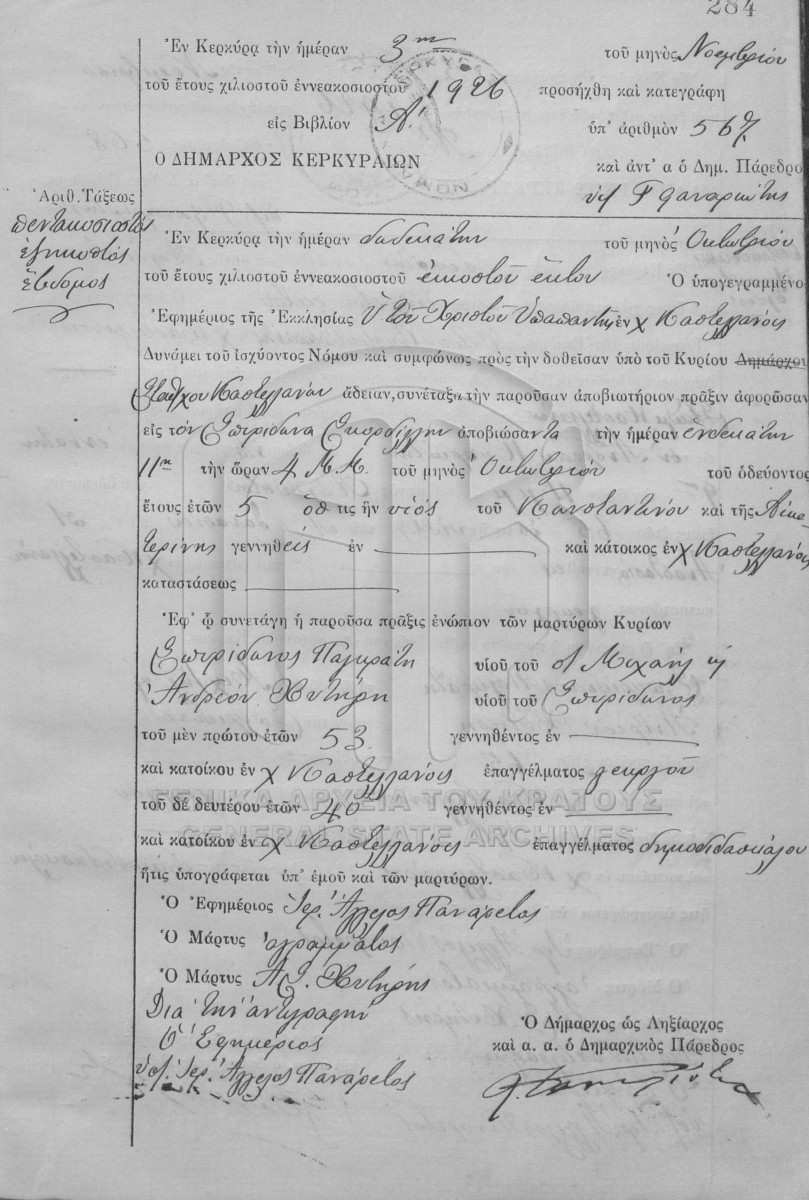 284
Ἐν Κερκύρᾳ τὴν ἡμέραν 3ην τοῦ μηνὸς Νοεμβρίου
τοῦ ἔτους χιλιοστοῦ ἐννεακοσιοστοῦ 1926 προσήχθη καὶ κατεγράφη
εἰς Βιβλίον Α΄. ὑπ' ἀριθμὸν 567
Ο ΔΗΜΑΡΧΟΣ ΚΕΡΚΥΡΑΙΩΝ καὶ ἀντ' α ὁ Δημ. Πάρεδρο
Ἀριθ. Τάξεως
πεντακοσιοστός
ἑξηκοστός
ἕβδομος
Ἐν Κερκύρᾳ τὴν ἡμέραν δωδεκάτην τοῦ μηνὸς Ὀκτωβρίου
τοῦ ἔτους χιλιοστοῦ ἐννεακοσιοστοῦ εἰκοστοῦ ἕκτου Ὁ ὑπογεγραμμένο
Ἐφημέριος τῆς Ἐκκλησίας Ὑ τοῦ Χριστοῦ Ὑπαπαντῆς ἐν χ Καστελλάνοις
Δυνάμει τοῦ ἰσχύοντος Νόμου καὶ συμφώνως πρὸς τὴν δοθεῖσαν ὑπὸ τοῦ Κυρίου Δημάρχου
Καστελλάνων ἄδειαν, συνέταξα τὴν παροῦσαν ἀποβιωτήριον πρᾶξιν ἀφορῶσαν
εἰς τὸν Σπυρίδωνα Σκορδίλλην ἀποβιώσαντα τὴν ἡμέραν ἑνδεκάτην
11ην τὴν ὥραν 4 Μ.Μ. τοῦ μηνὸς Ὀκτωβρίου τοῦ ὁδεύοντος
ἔτους ἐτῶν 5 ὅστις ἦν υἱός τοῦ Κωνσταντίνου καὶ τῆς Αἰκα
τερίνης γεννηθείς ἐν καὶ κάτοικος ἐν χ Καστελλάνοις
καταστάσεως
Ἐφ' ᾧ συνετάγη ἡ παροῦσα πρᾶξις ἐνώπιον τῶν μαρτύρων Κυρίων
Σπυρίδωνος Παγκράτη υἱοῦ τοῦ Μιχαήλ
Ἀνδρέου Χυτήρη υἱοῦ τοῦ Σπυρίδωνος
τοῦ μὲν πρώτου ἐτῶν 53 γεννηθέντος ἐν
καὶ κατοίκου ἐν χ Καστελλάνοις ἐπαγγέλματος γεωργοῦ
ΓΕΝΙΚΑ ΑΡΧΕΙΑ ΤΟΥ ΚΡΑΤΟΥΣ
τοῦ δὲ δευτέρου ἐτῶν 40 γεννηθέντος ἐν
GENERAL STATE ARCHIVES
καὶ κατοίκου ἐν χ Καστελλάνοις ἐπαγγέλματος δημοδιδασκάλου
ἥτις ὑπογράφεται ὑπ' ἐμοῦ καὶ τῶν μαρτύρων.
Ὁ Ἐφημέριος Ἱερ. Ἄγγελος Πανάρετος
Ὁ Μάρτυς ἀγράμματος
Ὁ Μάρτυς Α. Σ. Χυτήρης
Διὰ τὴν ἀντιγραφὴν
Ὁ Ἐφημέριος
ὑπ. Ἱερ. Ἄγγελος Πανάρετος
Ὁ Δήμαρχος ὡς Ληξίαρχος
καὶ α. α. ὁ Δημαρχικὸς Πάρεδρος